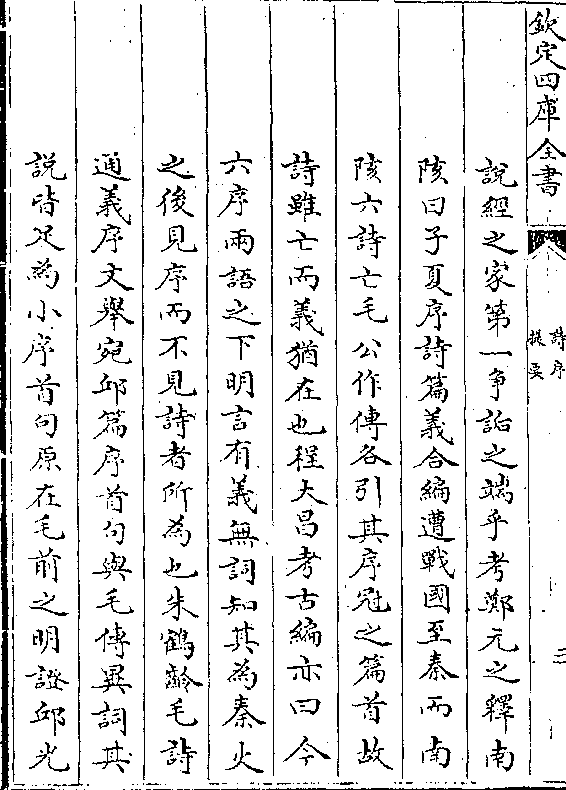 欽定四庫全書
詩序
提要
二
說經之家第一爭詬之端乎考鄭元之釋南
陔曰子夏序詩篇義合編遭戰國至秦而南
陔六詩亡毛公作傳各引其序冠之篇首故
詩雖亡而義猶在也程大昌考古編亦曰今
六序兩語之下明言有義無詞知其為秦火
之後見序而不見詩者所為也朱鶴齡毛詩
通義序文舉宛邱篇序首句與毛傳異詞其
說皆足為小序首句原在毛前之明證邱光